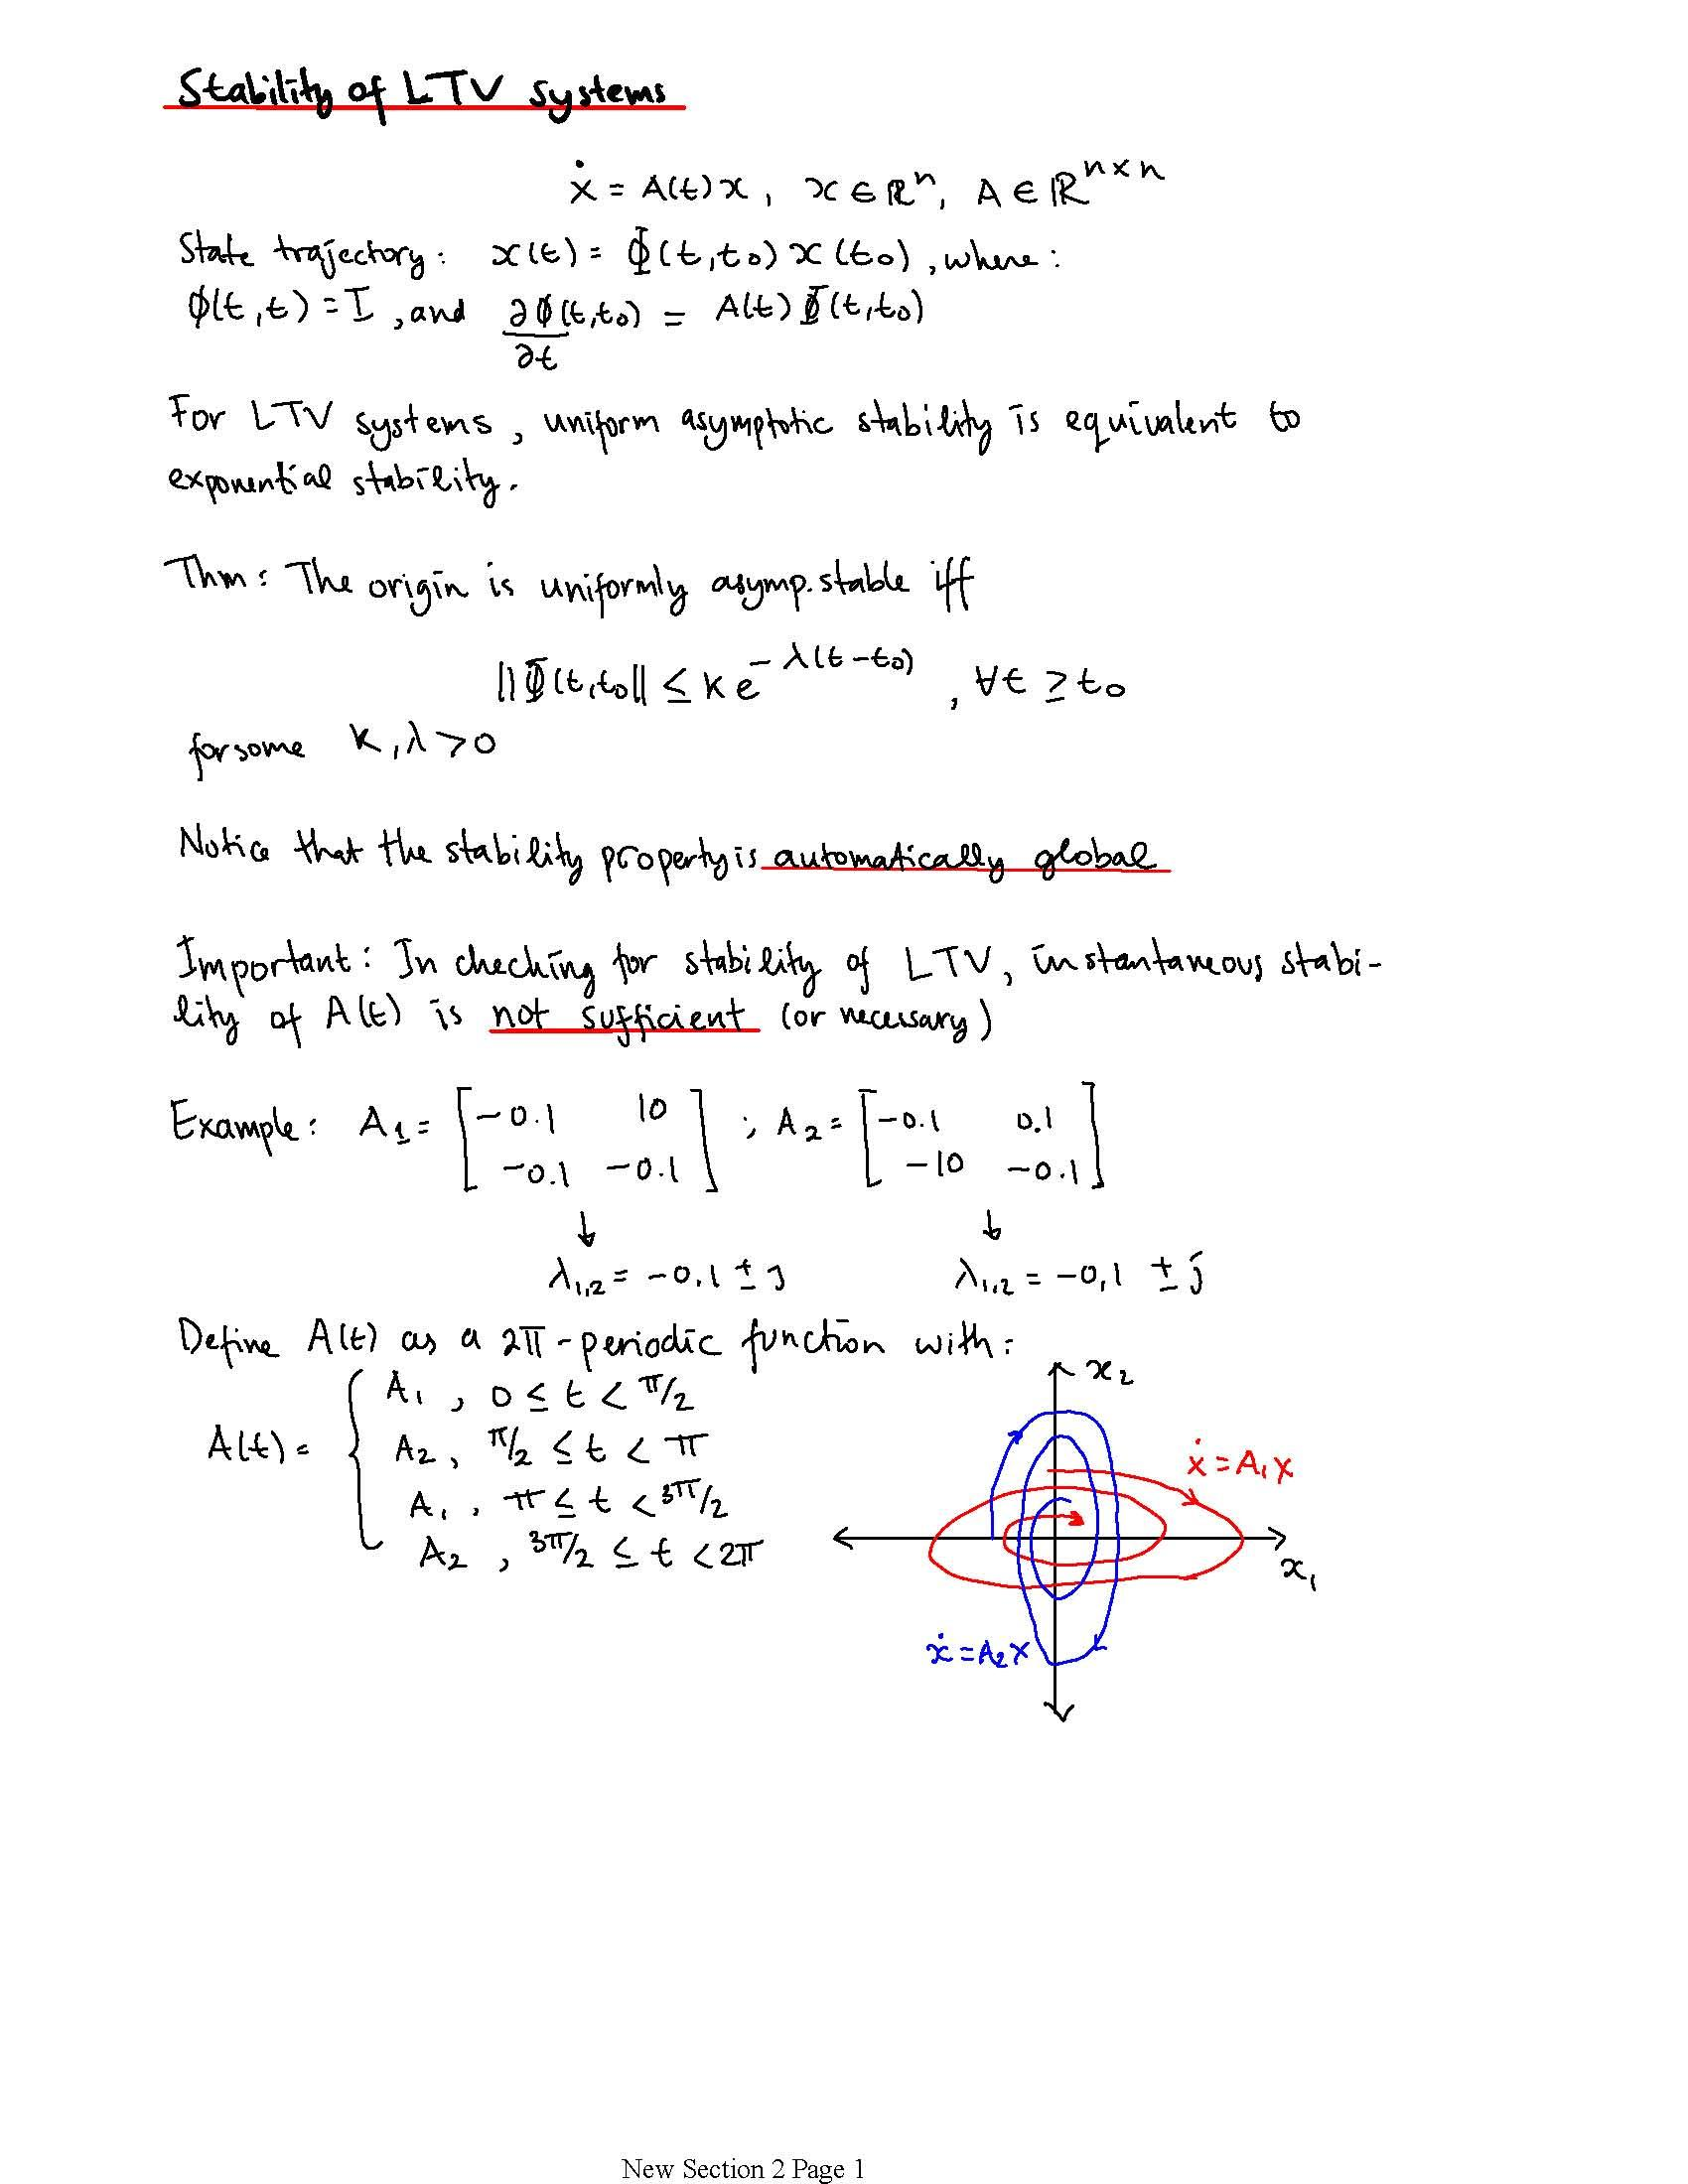 Stability of LTV systems
ẋ = A(t)x, x ∈ ℝⁿ, A ∈ ℝⁿˣⁿ
State trajectory: x(t) = Φ(t,t₀) x(t₀), where:
Φ(t,t) = I, and ∂Φ(t,t₀)/∂t = A(t)Φ(t,t₀)
For LTV systems, uniform asymptotic stability is equivalent to
exponential stability.
Thm: The origin is uniformly asymp. stable iff
||Φ(t,t₀|| ≤ k e^{-λ(t-t₀)}, ∀t ≥ t₀
for some k, λ > 0
Notice that the stability property is automatically global
Important: In checking for stability of LTV, instantaneous stabi-
lity of A(t) is not sufficient (or necessary)
Example: A₁ = [-0.1 10; -0.1 -0.1] ; A₂ = [-0.1 0.1; -10 -0.1]
↓ ↓
λ₁,₂ = -0.1 ± j λ₁,₂ = -0,1 ± j
Define A(t) as a 2π-periodic function with:
A(t) = {
A₁, 0 ≤ t < π/2
A₂, π/2 ≤ t < π
A₁, π ≤ t < 3π/2
A₂, 3π/2 ≤ t < 2π
x₂
ẋ = A₁x
x₁
ẋ = A₂x
New Section 2 Page 1